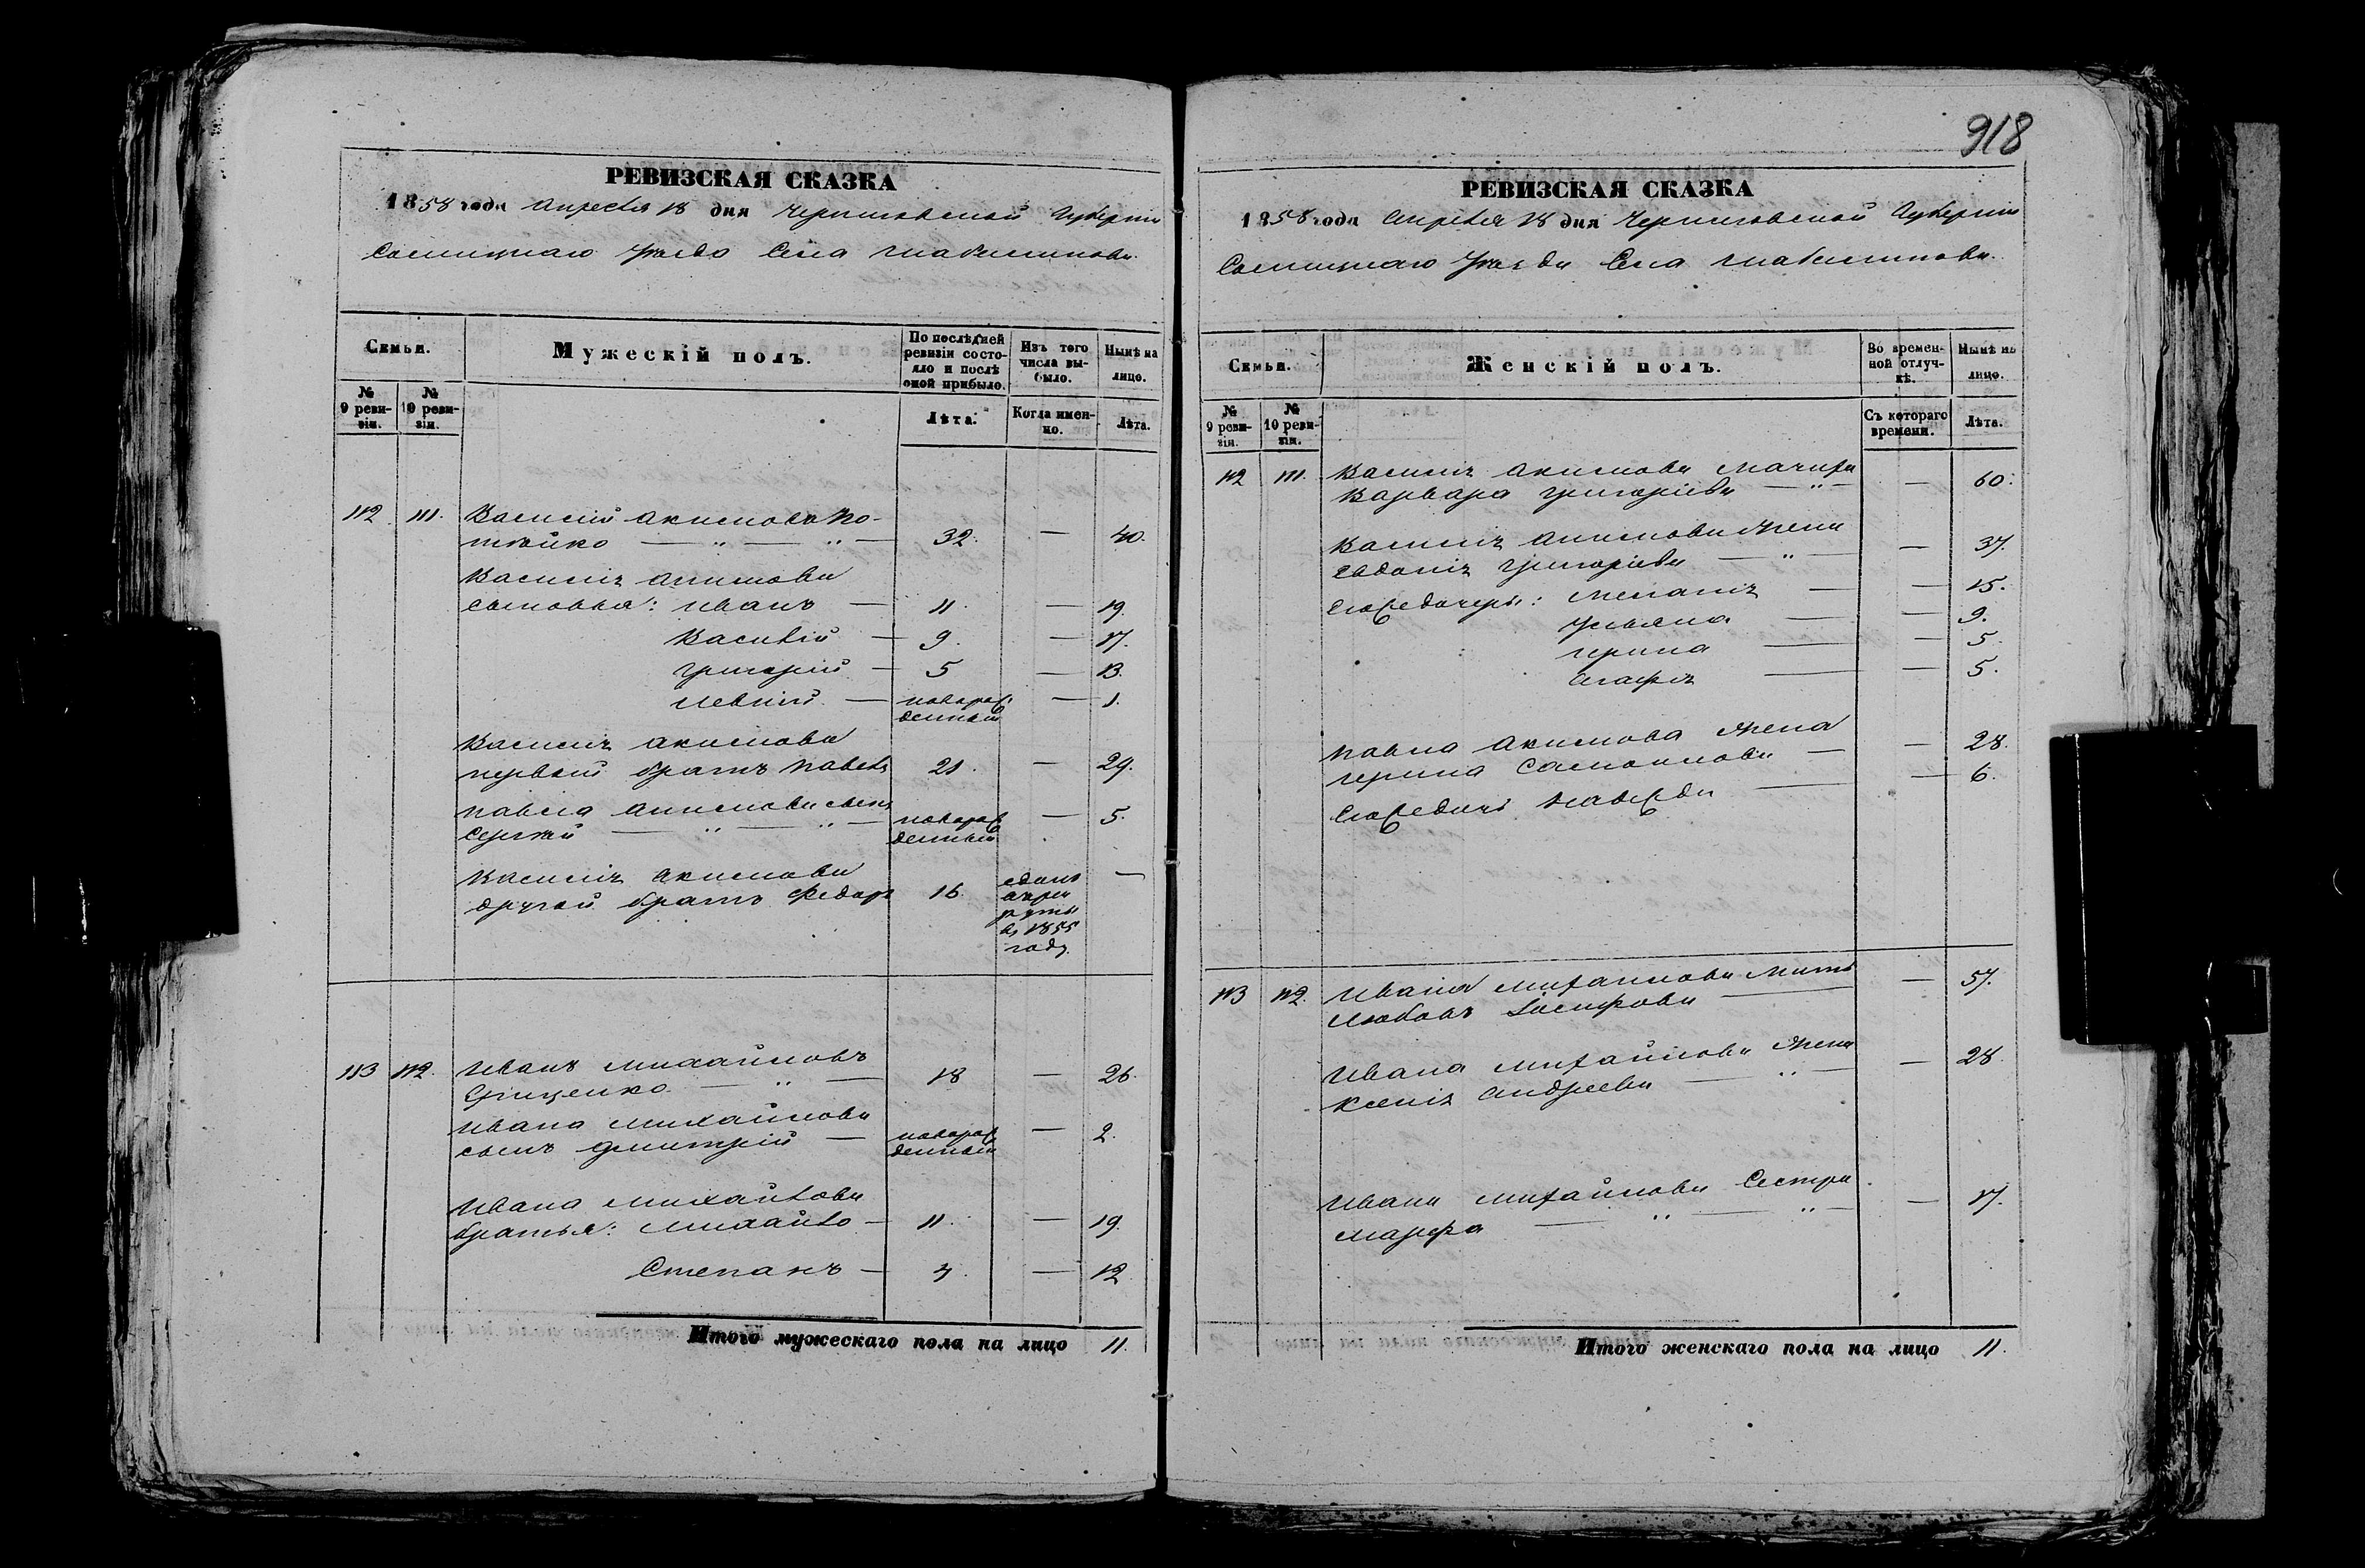 918
РЕВИЗСКАЯ СКАЗКА
1858 года Апреля 18 дня Черниговской Губернии
Сосницкаго Уезда Села
Семьи.
Мужескій полъ.
По послѣдней ревизіи состояло и послѣ оной прибыло.
Изъ того числа выбыло.
Нынѣ на лицо.
№ 9 ревизіи.
№ 10 ревизіи.
Лѣта.
Когда именно.
Лѣта.
112 111. Василий Акимовъ
— " — " — 32. — 40.
Василия Акимова
сыновья: Иванъ — 11. — 19.
Василій — 9. — 17.
Григорій — 5 — 13.
— новорожденный — 1.
Василия Акимова
первый братъ Павелъ 21. — 29.
Павла Акимова сынъ
Сергѣй — " — " — новорожденный — 5.
Василия Акимова
другой братъ Федоръ 16. сданъ в рекруты въ 1855 году. —
113 112. Иванъ Михайловъ
Гриценко — " — 18 — 26.
Ивана Михайлова
сынъ Дмитрій — новорожденный — 2.
Ивана Михайлова
братья: Михайло — 11. — 19.
Степанъ — 4. — 12
Итого мужескаго пола на лицо 11.
РЕВИЗСКАЯ СКАЗКА
1858 года Апреля 18 дня Черниговской Губернии
Сосницкаго Уезда Села
Семьи.
Женскій полъ.
Во временной отлучкѣ.
Нынѣ на лицо.
№ 9 ревизіи.
№ 10 ревизіи.
Съ котораго времени.
Лѣта.
112 111. Василия Акимова мачиха
Варвара Григоріева — " — — 60.
Василия Акимова жена
Евдокия Григоріева — " — — 37.
Его же дочери: Мелания — — 15.
Ульяна — — 9.
Ирина — — 5.
Агафия — — 5.
Павла Акимова жена
Ирина — — 28.
Его же дочь — — 6.
113 112. Ивана Михайлова мать
Любовь Іосифова — — 57.
Ивана Михайлова жена
Ксения Андреева — " — — 28.
Ивана Михайлова сестра
Марфа — " — " — — 17.
Итого женскаго пола на лицо 11.